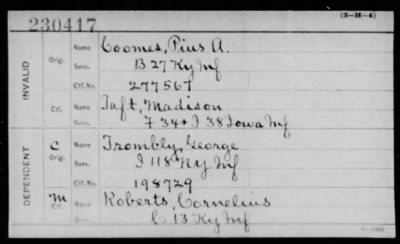 (3-H-4)
230417
INVALID
Orig.
Name Coomes, Pius A.
Serv. B 27 Ky Inf
Ctf. No. 277567
Ctf.
Name Taft, Madison
Serv. F 34 + I 38 Iowa Inf
DEPENDENT
C
Orig.
Name Trombly, George
Serv. I 118 NY Inf
Ctf. No. 198729
M
Ctf.
Name Roberts, Cornelius
Serv. C 13 Ky Inf